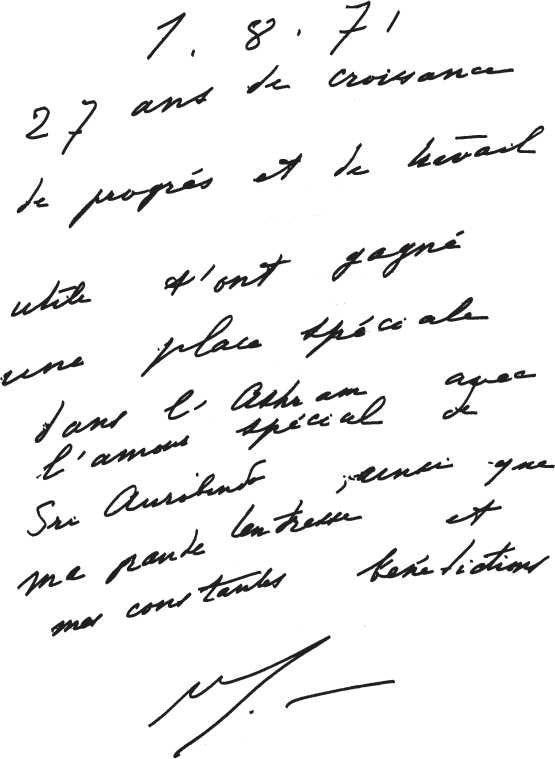 1.8.71
27 ans de croissance
de progrés et de travail
utile t'ont gagné
une place spéciale
dans l'Ashram avec
l'amour spécial de
Sri Aurobindo, ainsi que
ma grande tendresse et
mes constantes bénédictions